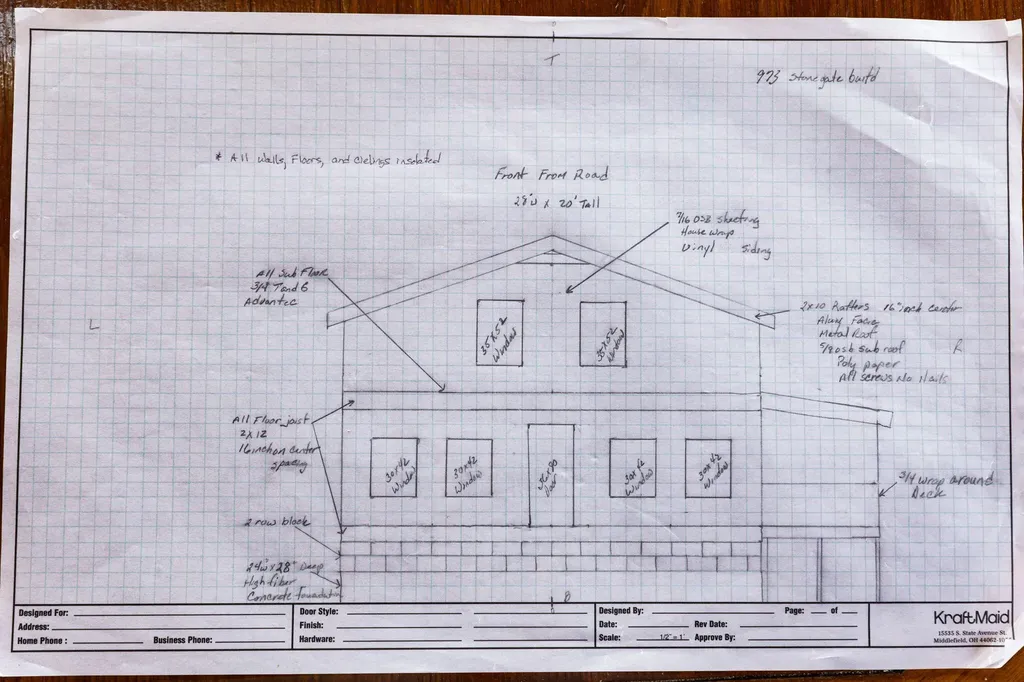 T
973 Stonegate build
* All Walls, Floors, and Cielings insolated
Front From Road
28'W x 20' Tall
7/16 OSB Sheeting
House wrap
Vinyl Siding
All Sub Floor
3/4 T and G
Advantec
2x10 Rafters 16" inch center
Alum Facia
Metal Roof
5/8 osb sub roof
Poly paper
All screws No Nails
L
R
35x52
Window
35x52
Window
All Floor joist
2x12
16 inch on center
spacing
30x42
Window
30x42
Window
36x80
Door
30x42
Window
30x42
Window
3/4 wrap around
Deck
2 row block
24"W x 28" Deep
High fiber
Concrete Foundation
B
Designed For:
Address:
Home Phone :
Business Phone:
Door Style:
Finish:
Hardware:
Designed By:
Page: of
Date:
Rev Date:
Scale: 1/2" = 1'
Approve By:
KraftMaid
15535 S. State Avenue St.
Middlefield, OH 44062-10